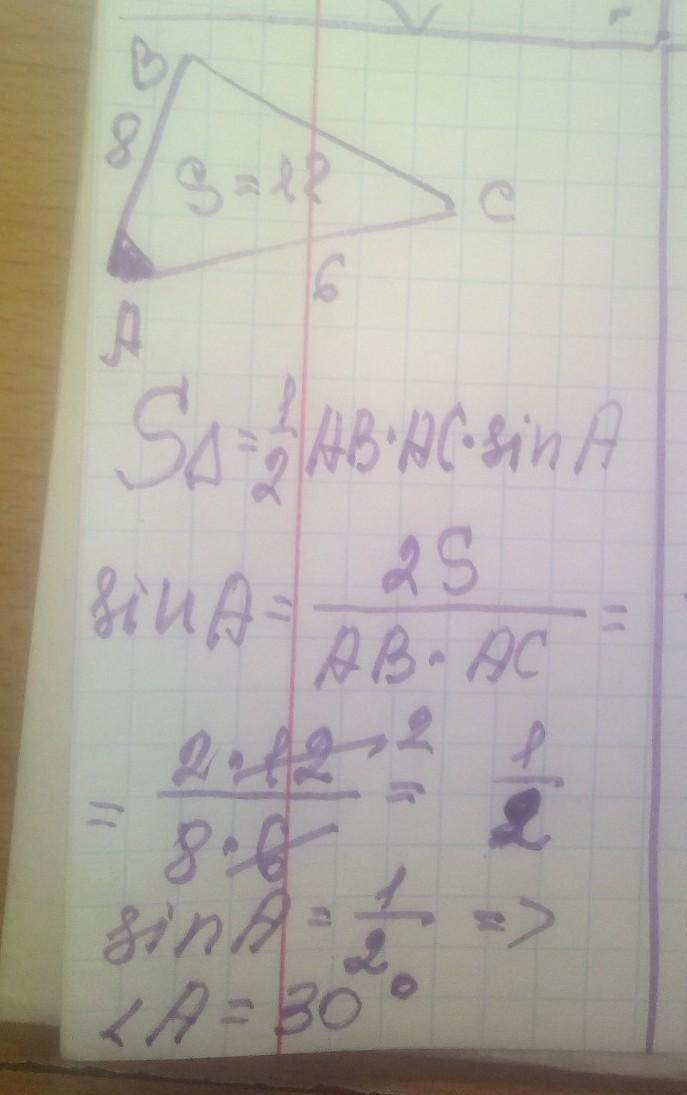 B
8
S = 12
C
6
A
S△ = 1/2 AB · AC · sin A
sin A = 2S / AB · AC =
= 2 · 12 2 / 8 · 6 = 1/2
sin A = 1/2 =>
∠A = 30°